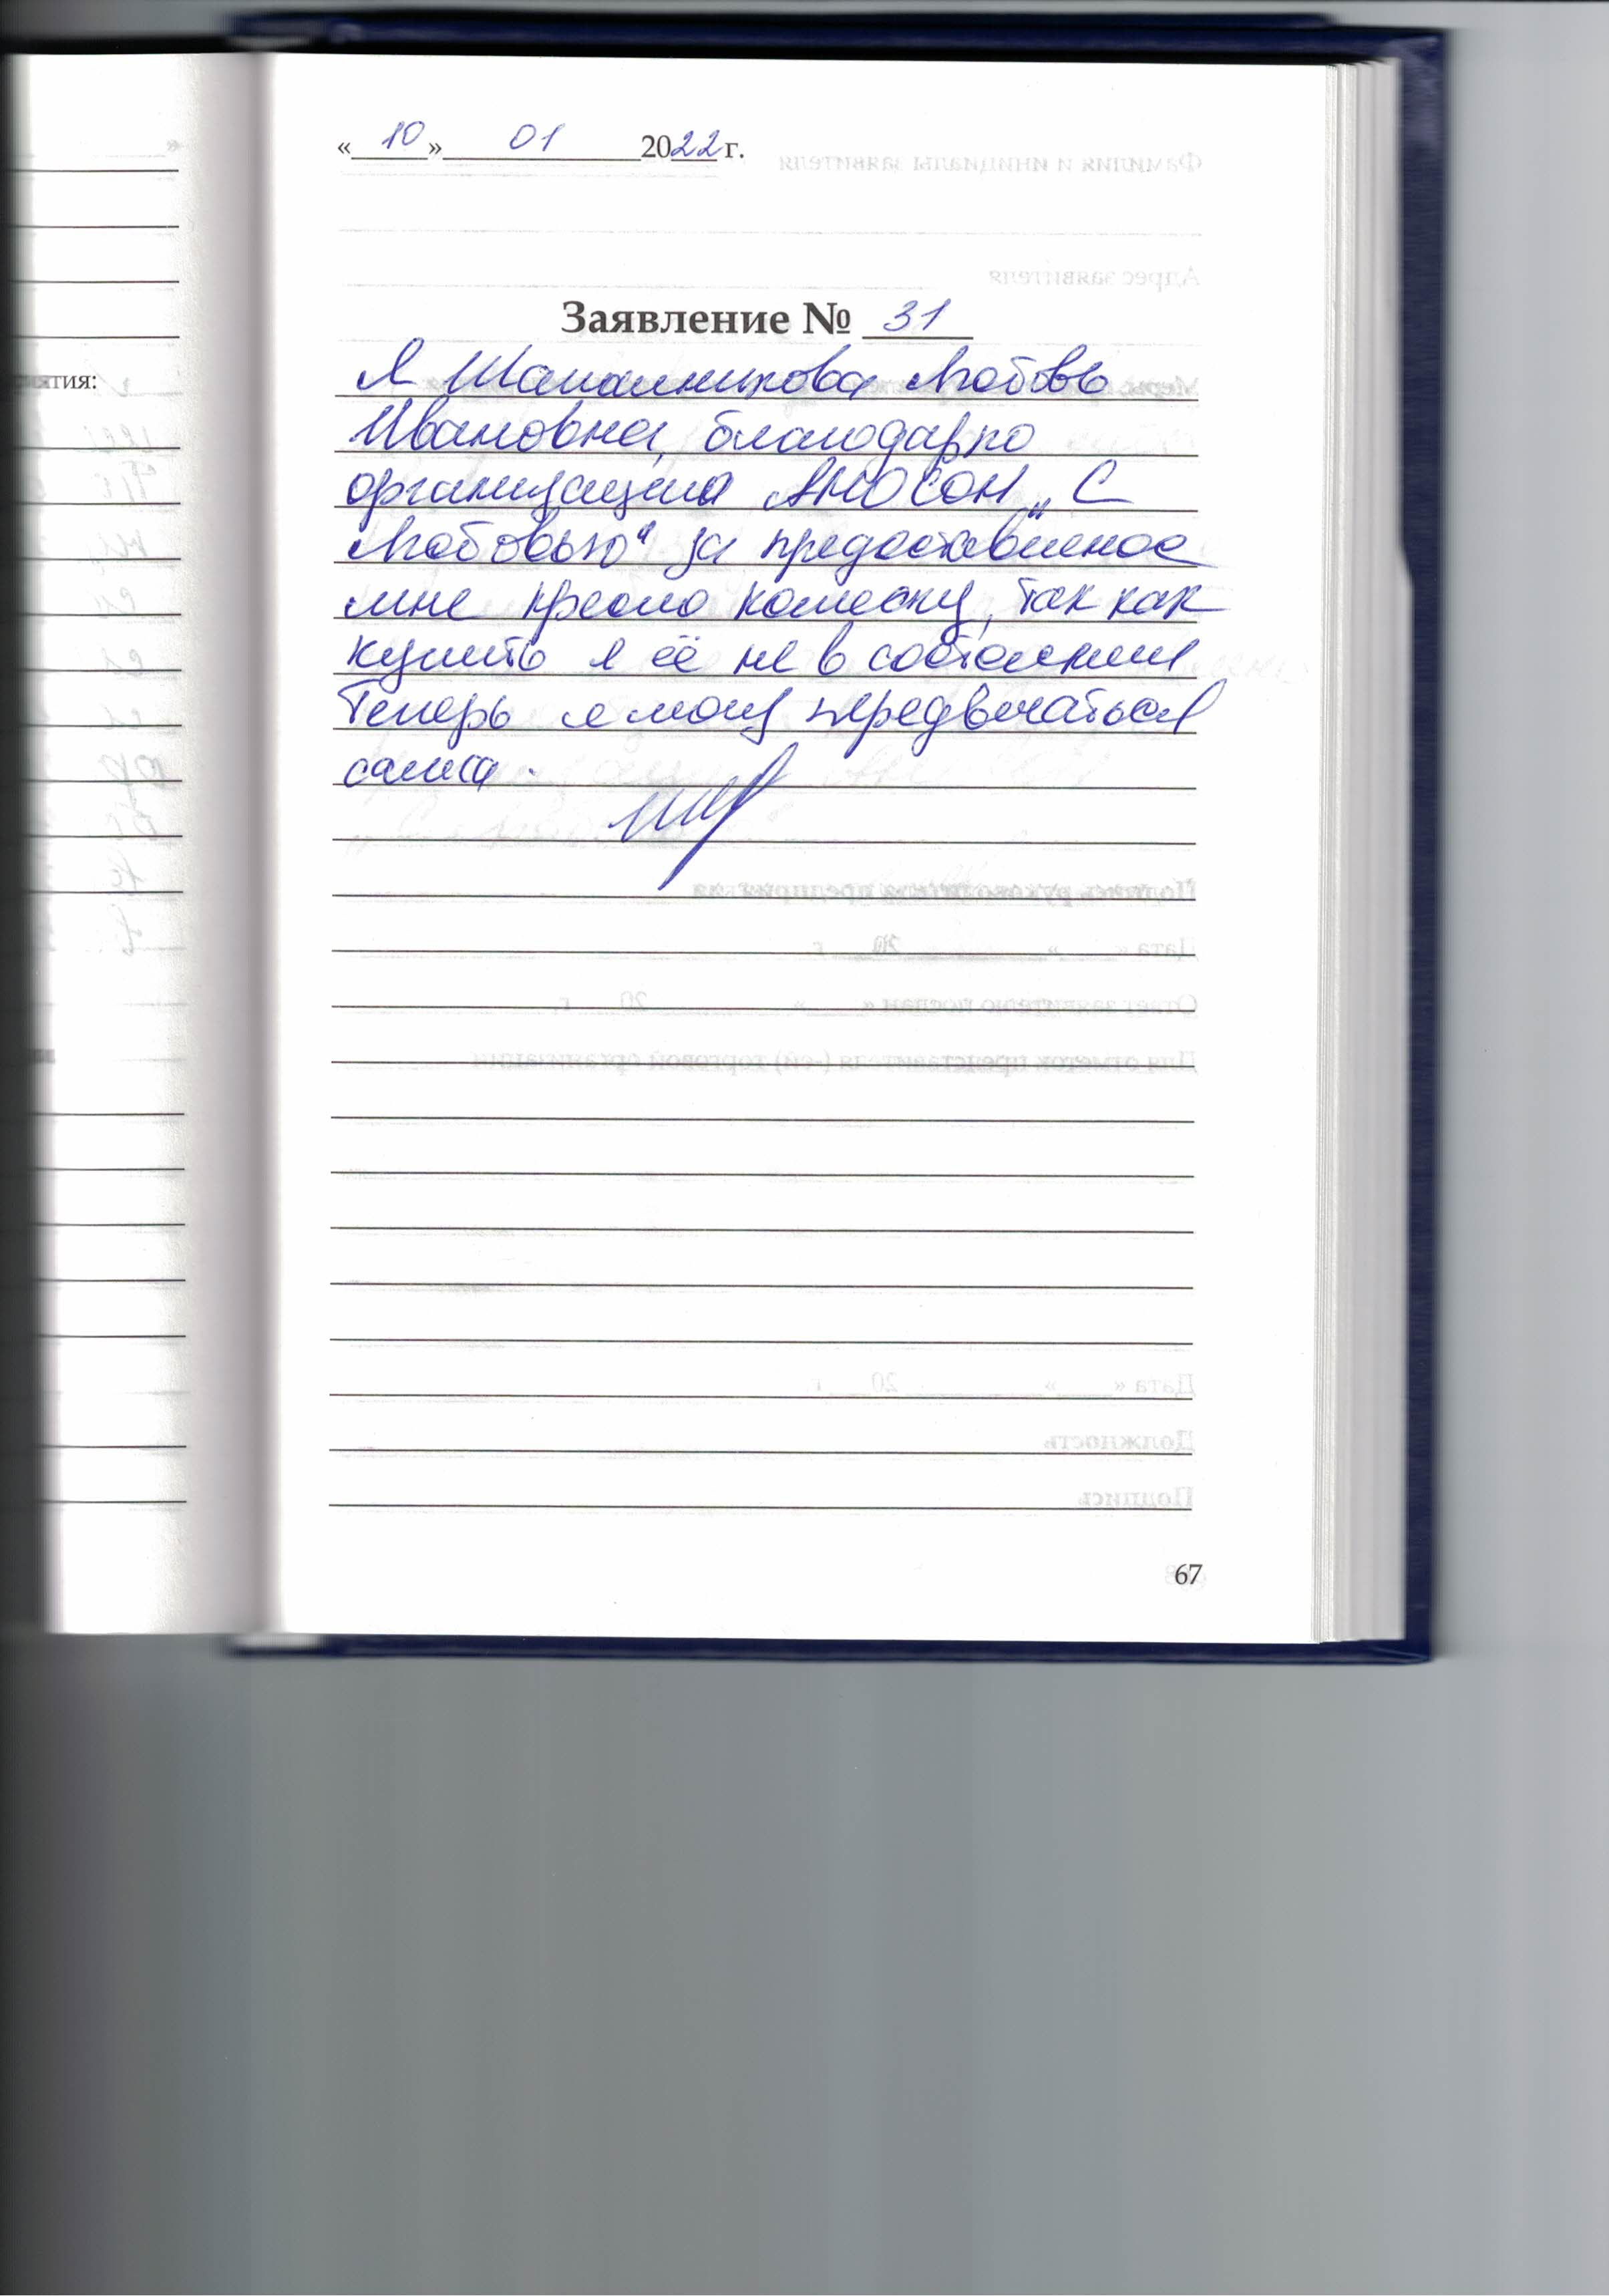 «10» 01 2022 г.
Заявление № 31
Я Любовь
Ивановна, благодарю
организация АНОСОН „С
Любовью" за предоставленое
мне кресло коляску, так как
купить я её не в состоянии
Теперь я могу передвигаться
сама.
67